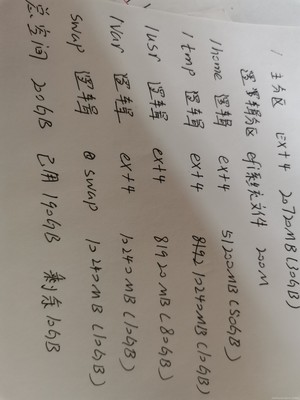 / 主分区 Ext4 20720MB(30GB)
逻辑分区 efi系统文件 200M
/home 逻辑 ext4 51200MB(50GB)
/tmp 逻辑 ext4 8192 10240MB(10GB)
/usr 逻辑 ext4 81920MB(80GB)
/var 逻辑 ext4 10240MB(10GB)
swap 逻辑 swap 10240MB(10GB)
总空间 200GB 已用190GB 剩余10GB